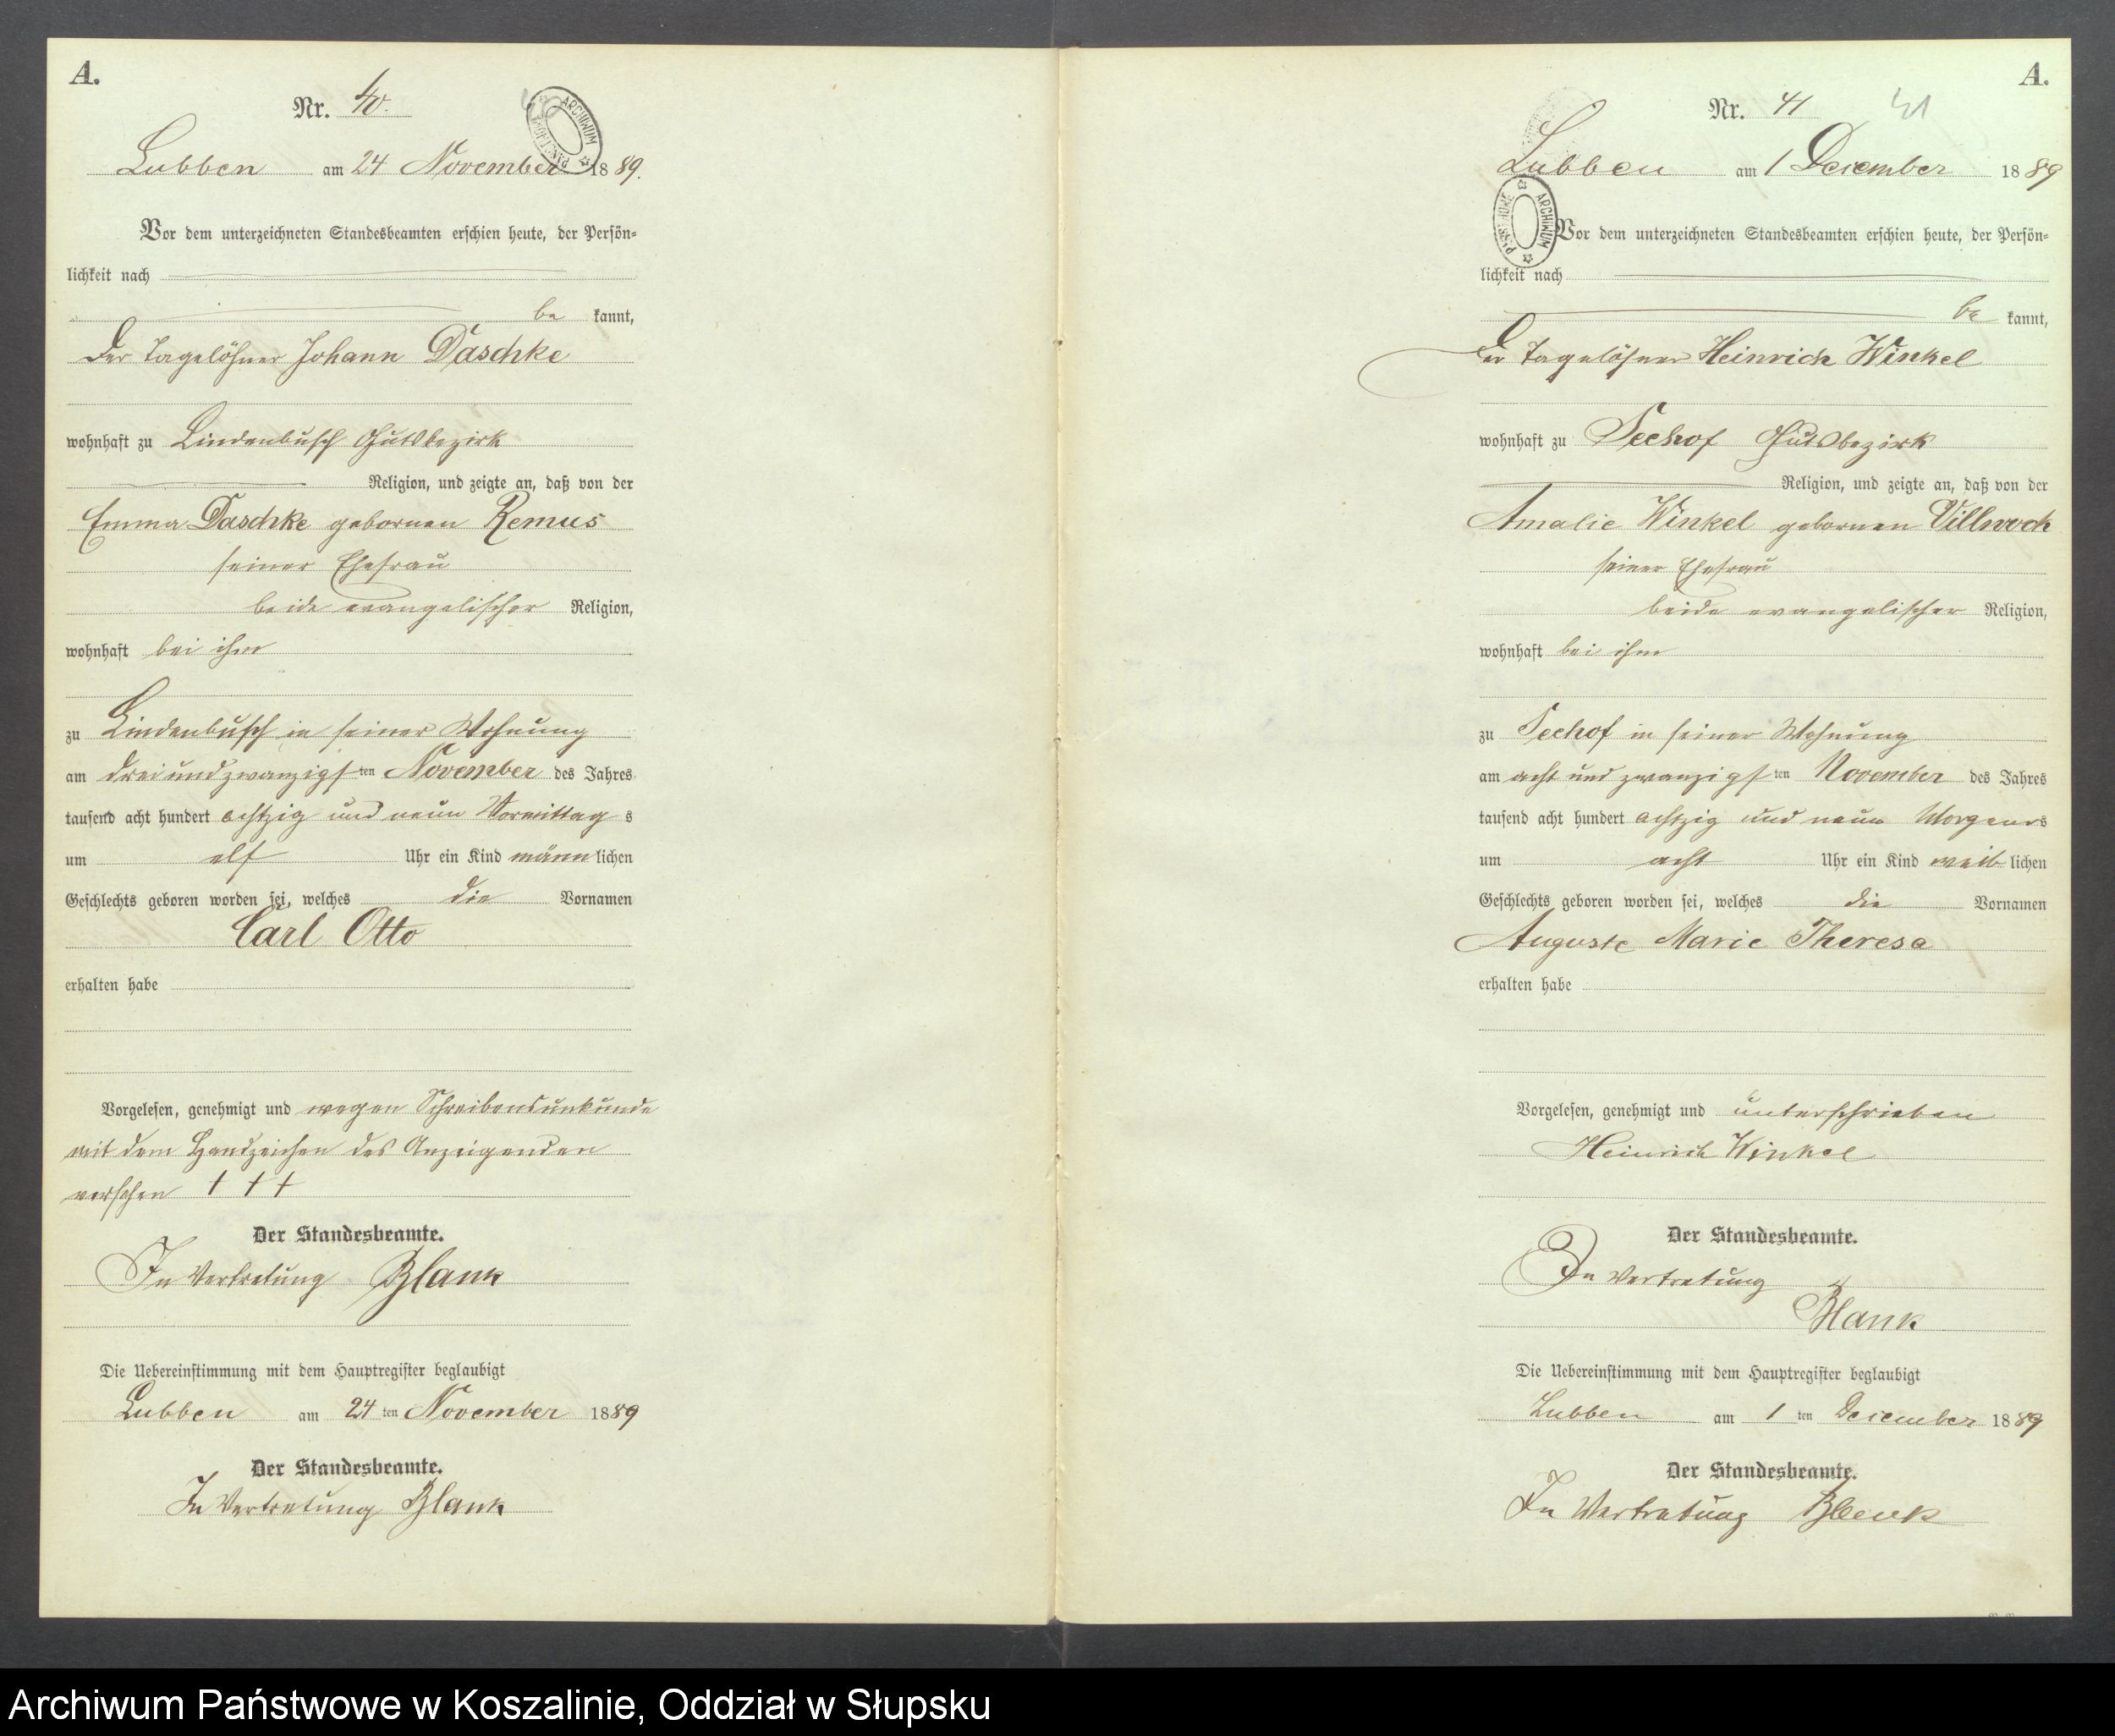 A.
Nr. 40.
ARCHIWUM PAŃSTWOWE
Lubben am 24 November 1889.
Vor dem unterzeichneten Standesbeamten erschien heute, der Persön-
lichkeit nach
be kannt,
der Tagelöhner Johann Daschke
wohnhaft zu Lindenbusch Gutsbezirk
Religion, und zeigte an, daß von der
Emma Daschke gebornen Remus
seiner Ehefrau
beide evangelischer Religion,
wohnhaft bei ihm
zu Lindenbusch in seiner Wohnung
am dreiundzwanzigsten November des Jahres
tausend acht hundert achtzig und neun Vormittags
um elf Uhr ein Kind männlichen
Geschlechts geboren worden sei, welches die Vornamen
Carl Otto
erhalten habe
Vorgelesen, genehmigt und wegen Schreibensunkunde
mit dem Handzeichen des Anzeigenden
versehen † † †
Der Standesbeamte.
In Vertretung Blank
Die Uebereinstimmung mit dem Hauptregister beglaubigt
Lubben am 24ten November 1889
Der Standesbeamte.
In Vertretung Blank
A.
Nr. 41 41
Lubben am 1 December 1889
ARCHIWUM PAŃSTWOWE
Vor dem unterzeichneten Standesbeamten erschien heute, der Persön-
lichkeit nach
be kannt,
der Tagelöhner Heinrich Winkel
wohnhaft zu Seehof Gutsbezirk
Religion, und zeigte an, daß von der
Amalie Winkel gebornen Villwock
seiner Ehefrau
beide evangelischer Religion,
wohnhaft bei ihm
zu Seehof in seiner Wohnung
am acht und zwanzigsten November des Jahres
tausend acht hundert achtzig und neun Morgens
um acht Uhr ein Kind weiblichen
Geschlechts geboren worden sei, welches die Vornamen
Auguste Marie Theresa
erhalten habe
Vorgelesen, genehmigt und unterschrieben
Heinrich Winkel
Der Standesbeamte.
In Vertretung
Blank
Die Uebereinstimmung mit dem Hauptregister beglaubigt
Lubben am 1ten December 1889
Der Standesbeamte.
In Vertretung Blank
Archiwum Państwowe w Koszalinie, Oddział w Słupsku